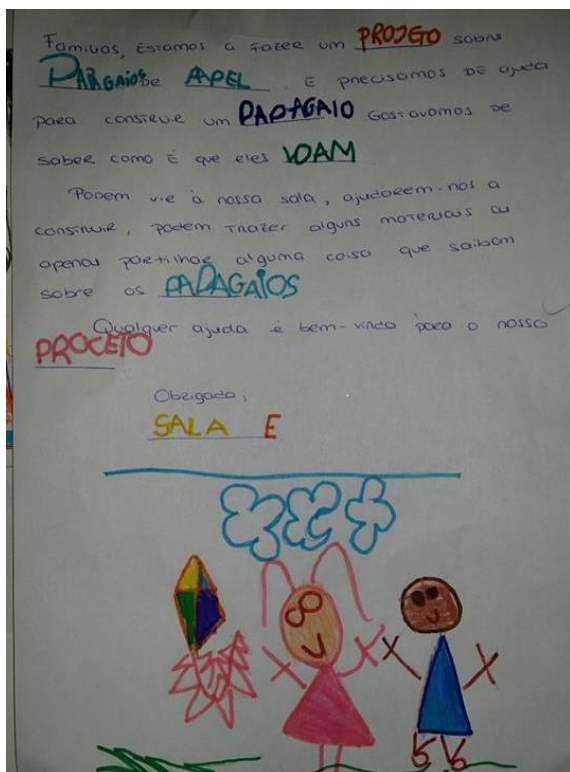 Famílias, Estamos a fazer um PROJETO sobre
PARAGAIOS DE PAPEL. E precisamos DE ajuda
para construir um PAPAGAIO Gostávamos DE
saber como É que eles VOAM
Podem vir à nossa sala, ajudarem-nos a
construir, podem trazer alguns materiais ou
apenas partilhar alguma coisa que saibam
sobre os PAPAGAIOS
Qualquer ajuda é bem-vinda para o nosso
PROCETO
Obrigada,
SALA E